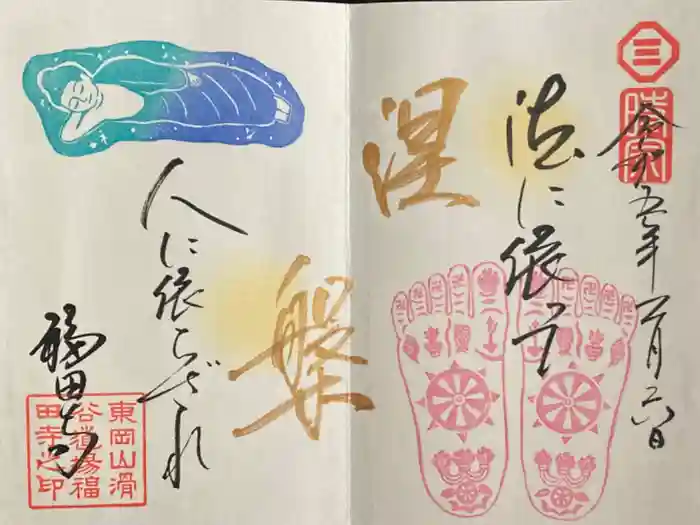 令和五年二月六日
法に依って
涅
槃
人に依らざれ
福田寺
東岡山滑
谷道場福
田寺之印